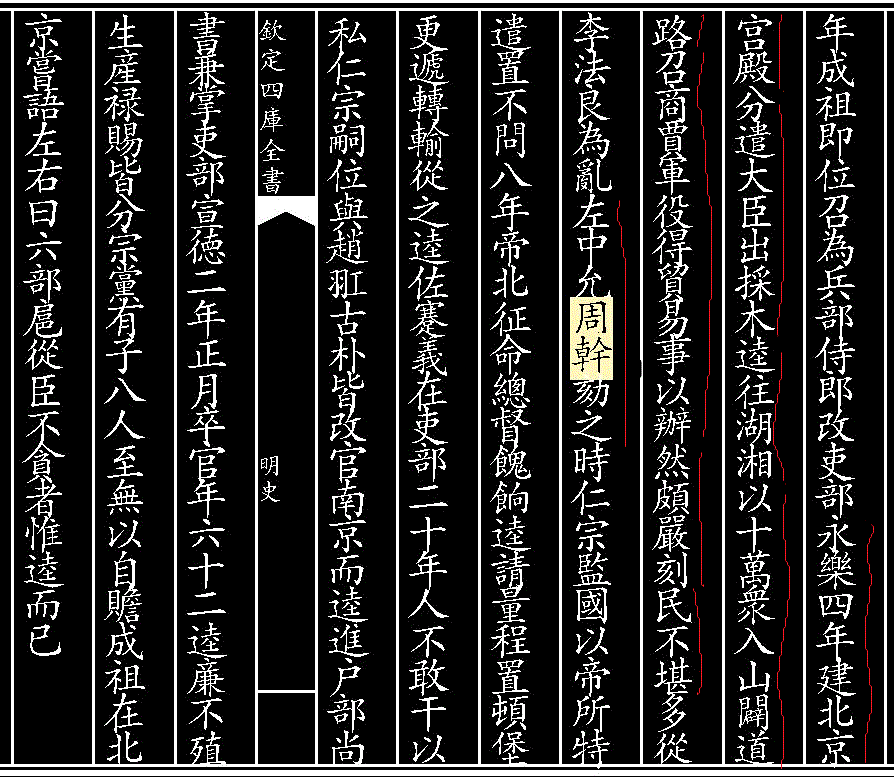 年成祖即位召為兵部侍郎改吏部永樂四年建北京
宫殿分遣大臣出採木逵往湖湘以十萬衆入山闢道
路召商賈軍役得貿易事以辦然頗嚴刻民不堪多從
李法良為亂左中允周幹劾之時仁宗監國以帝所特
遣置不問八年帝北征命總督餽餉逵請量程置頓堡
更遞轉輸從之逵佐蹇義在吏部二十年人不敢干以
私仁宗嗣位與趙羾古朴皆改官南京而逵進户部尚
欽定四庫全書
明史
書兼掌吏部宣徳二年正月卒官年六十二逵廉不殖
生産禄賜皆分宗黨有子八人至無以自贍成祖在北
京嘗語左右曰六部扈從臣不貪者惟逵而已